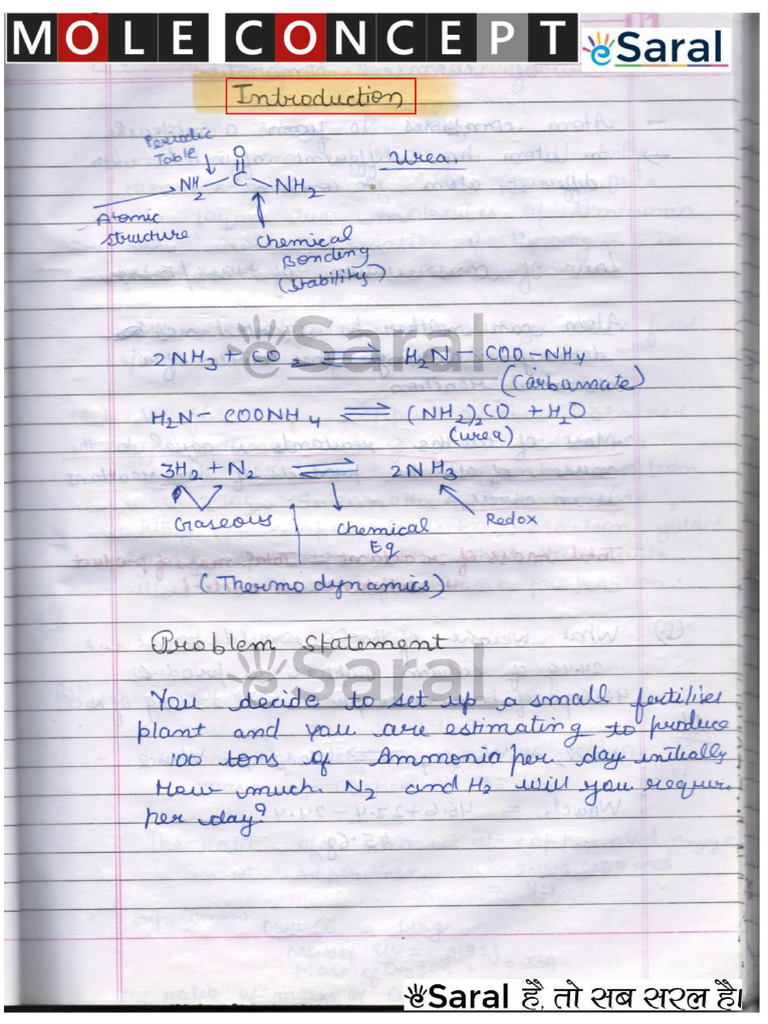 MOLE CONCEPT
eSaral
Introduction
Periodic
Table
O
Urea.
NH2 – C – NH2
Atomic
structure
Chemical
Bonding
(Stability)
eSaral
2NH3 + CO2 ⇌ H2N – COO – NH4
(Carbamate)
H2N – COONH4 ⇌ (NH2)2CO + H2O
(urea)
3H2 + N2 ⇌ 2NH3
Gaseous
Chemical
Eq
Redox
(Thermo dynamics)
Problem Statement
eSaral
You decide to set up a small fertiliser
plant and you are estimating to produce
100 tons of Ammonia per day initially
How much N2 and H2 will you require
per day?
eSaral है, तो सब सरल है।